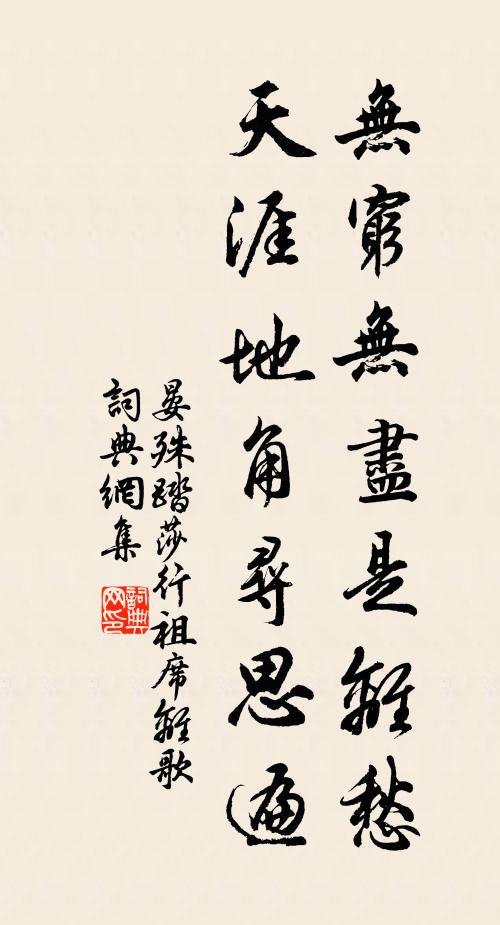 無窮無盡是離愁
天涯地角尋思遍
晏殊踏莎行祖席離歌
詞典網集
詞典網印